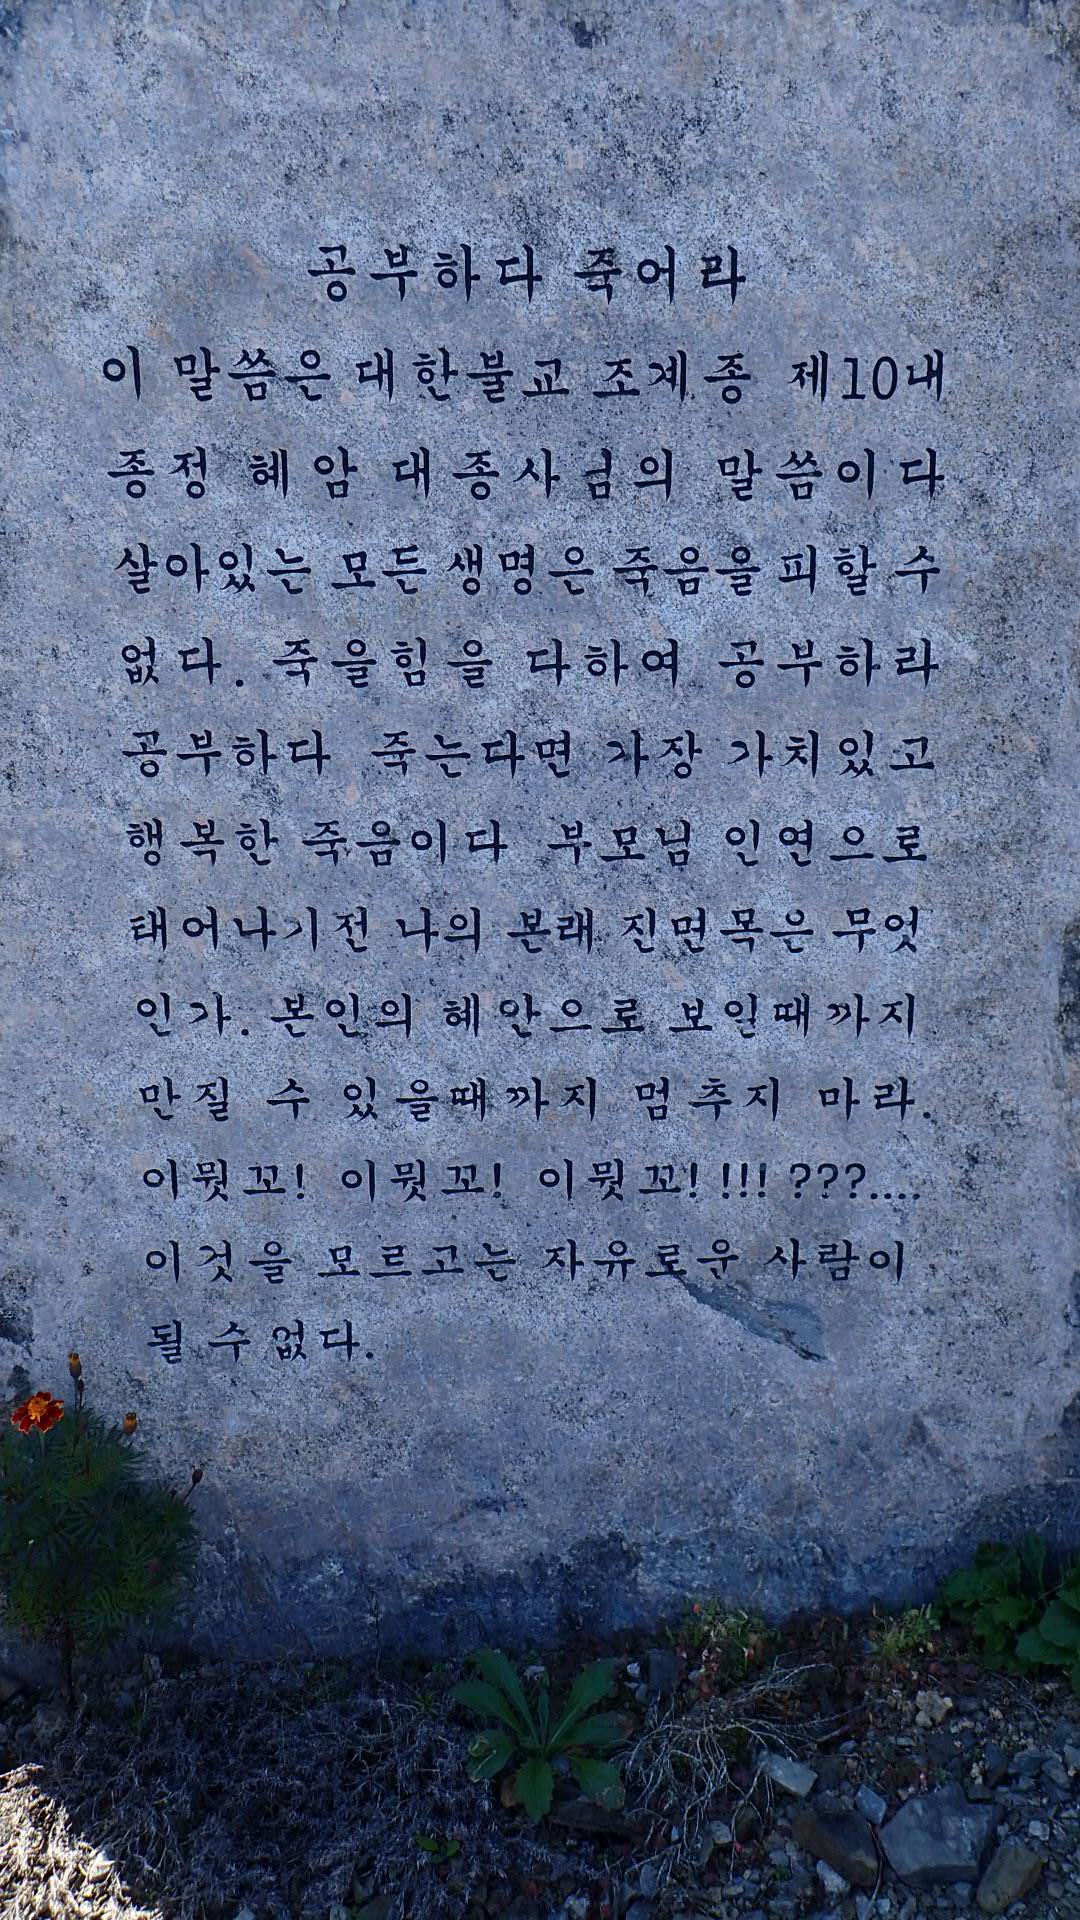 공부하다 죽어라
이 말씀은 대한불교 조계종 제10대
종정 혜암 대종사님의 말씀이다
살아있는 모든 생명은 죽음을 피할 수
없다. 죽을힘을 다하여 공부하라
공부하다 죽는다면 가장 가치있고
행복한 죽음이다 부모님 인연으로
태어나기전 나의 본래 진면목은 무엇
인가. 본인의 혜안으로 보일때까지
만질 수 있을때까지 멈추지 마라.
이뭣꼬! 이뭣꼬! 이뭣꼬! !!! ???....
이것을 모르고는 자유로운 사람이
될 수 없다.